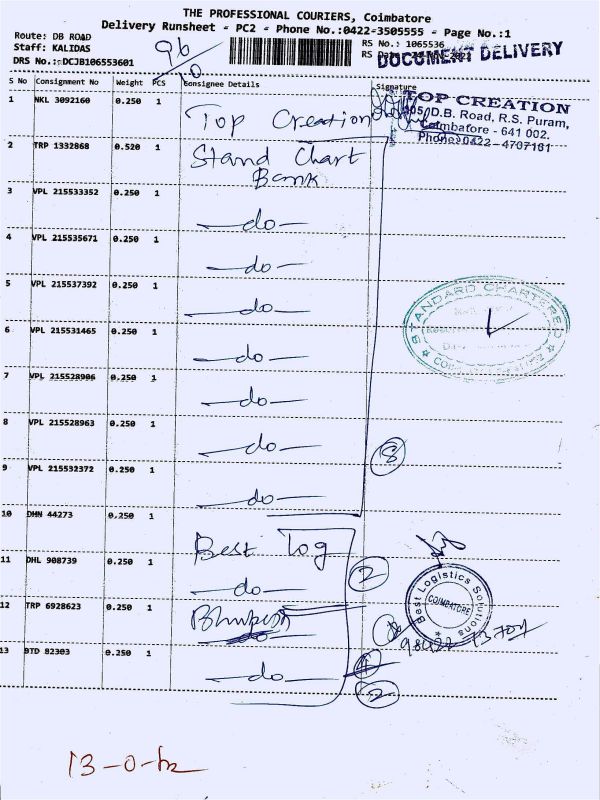 THE PROFESSIONAL COURIERS, Coimbatore
Delivery Runsheet - PC2 - Phone No.:0422-3505555 - Page No.:1
Route: DB ROAD
Staff: KALIDAS
DRS No.::DCJB106553601
96
10
RS No.: 1065536
RS Date
DOCUMENT DELIVERY
S No Consignment No Weight PCS Consignee Details Signature
1 NKL 3092160 0.250 1 Top Creation
TOP CREATION
305, D.B. Road, R.S. Puram,
Coimbatore - 641 002.
Phone: 0422 - 4707161
2 TRP 1332868 0.520 1 Stand Chart
Bank
3 VPL 215533352 0.250 1 -do-
4 VPL 215535671 0.250 1 -do-
5 VPL 215537392 0.250 1 -do-
STANDARD CHARTERED
6 VPL 215531465 0.250 1 -do-
7 VPL 215528906 0.250 1 -do-
8 VPL 215528963 0.250 1 -do-
8
9 VPL 215532372 0.250 1 -do-
10 DHN 44273 0.250 1 Best Log
11 DHL 908739 0.250 1 -do-
2
Best Logistics Solutions
COIMBATORE
12 TRP 6928623 0.250 1
13 BTD 82303 0.250 1 -do-
2